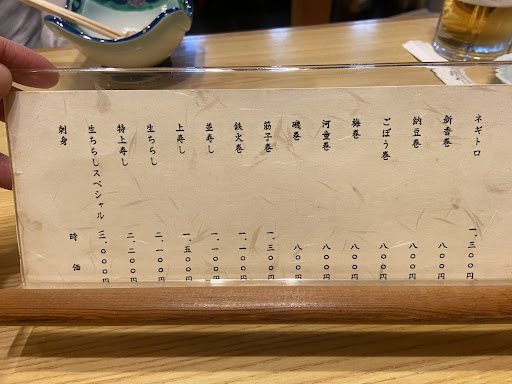 ネギトロ 一、三〇〇円
新香巻 八〇〇円
納豆巻 八〇〇円
ごぼう巻 八〇〇円
梅巻 八〇〇円
河童巻 八〇〇円
磯巻 八〇〇円
筋子巻 一、三〇〇円
鉄火巻 一、一〇〇円
並寿し 一、一〇〇円
上寿し 一、五〇〇円
生ちらし 二、一〇〇円
特上寿し 二、二〇〇円
生ちらしスペシャル 三、〇〇〇円
刺身 時価